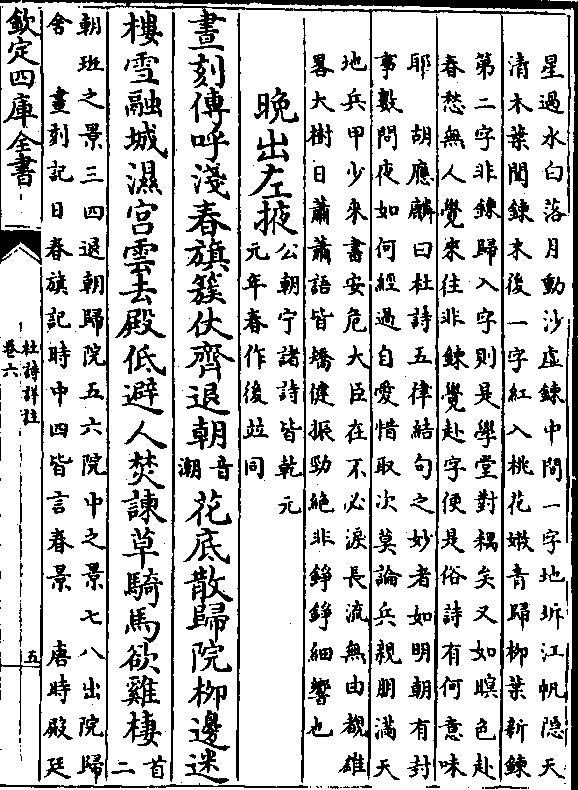 星過水白落月動沙虛鍊中間一字地坼江帆隱天
清木葉聞鍊末後一字紅入桃花嫰青歸柳葉新鍊
第二字非鍊歸入字則是學堂對耦矣又如暝色赴
春愁無人覺來往非鍊覺赴字便是俗詩有何意味
耶　胡應麟曰杜詩五律結句之妙者如明朝有封
事數問夜如何經過自愛惜取次莫論兵親朋滿天
地兵甲少來書安危大臣在不必淚長流無由覩雄
畧大樹日蕭蕭語皆矯健振勁絶非錚錚細響也
晚出左掖公朝宁諸詩皆乾元
元年春作後並同
晝刻傳呼淺春旗簇仗齊退朝音
潮花底散歸院柳邊迷
樓雪融城濕宮雲去殿低避人焚諫草騎馬欲雞棲首
二
朝班之景三四退朝歸院五六院中之景七八出院歸
舍　晝刻記日春旗記時中四皆言春景　唐時殿廷
欽定四庫全書
杜詩詳註
卷六
五